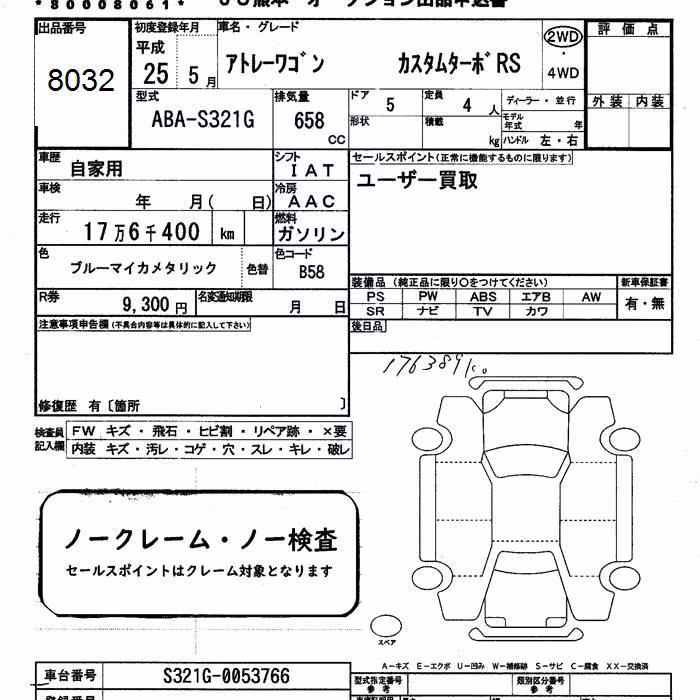 *80008061*
JU熊本 オークション出品申込書
出品番号
8032
初度登録年月
平成
25 5月
車名・グレード
アトレーワゴン カスタムターボRS
2WD
・
4WD
評価点
外装 内装
型式
ABA-S321G
排気量
658
CC
ドア
5
定員
4 人
形状
積載
kg
ディーラー・並行
モデル年式 年
ハンドル 左・右
車歴
自家用
シフト
IAT
車検
年 月( 日)
冷房
AAC
走行
17万6千400 km
燃料
ガソリン
色
ブルーマイカメタリック
色替
色コード
B58
R券
9,300円
名変通知期限
月 日
セールスポイント(正常に機能するものに限ります)
ユーザー買取
装備品 (純正品に限り○をつけてください)
新車保証書
PS PW ABS エアB AW
SR ナビ TV カワ
有・無
後日品
注意事項申告欄(不具合内容等は具体的に記入して下さい)
修復歴 有〔箇所 〕
176389K0
検査員記入欄
FW キズ・飛石・ヒビ割・リペア跡・×要
内装 キズ・汚レ・コゲ・穴・スレ・キレ・破レ
ノークレーム・ノー検査
セールスポイントはクレーム対象となります
スペア
A-キズ E-エクボ U-凹み W-補修跡 S-サビ C-腐食 XX-交換済
車台番号
S321G-0053766
型式指定番号
参考
類別区分番号
参考